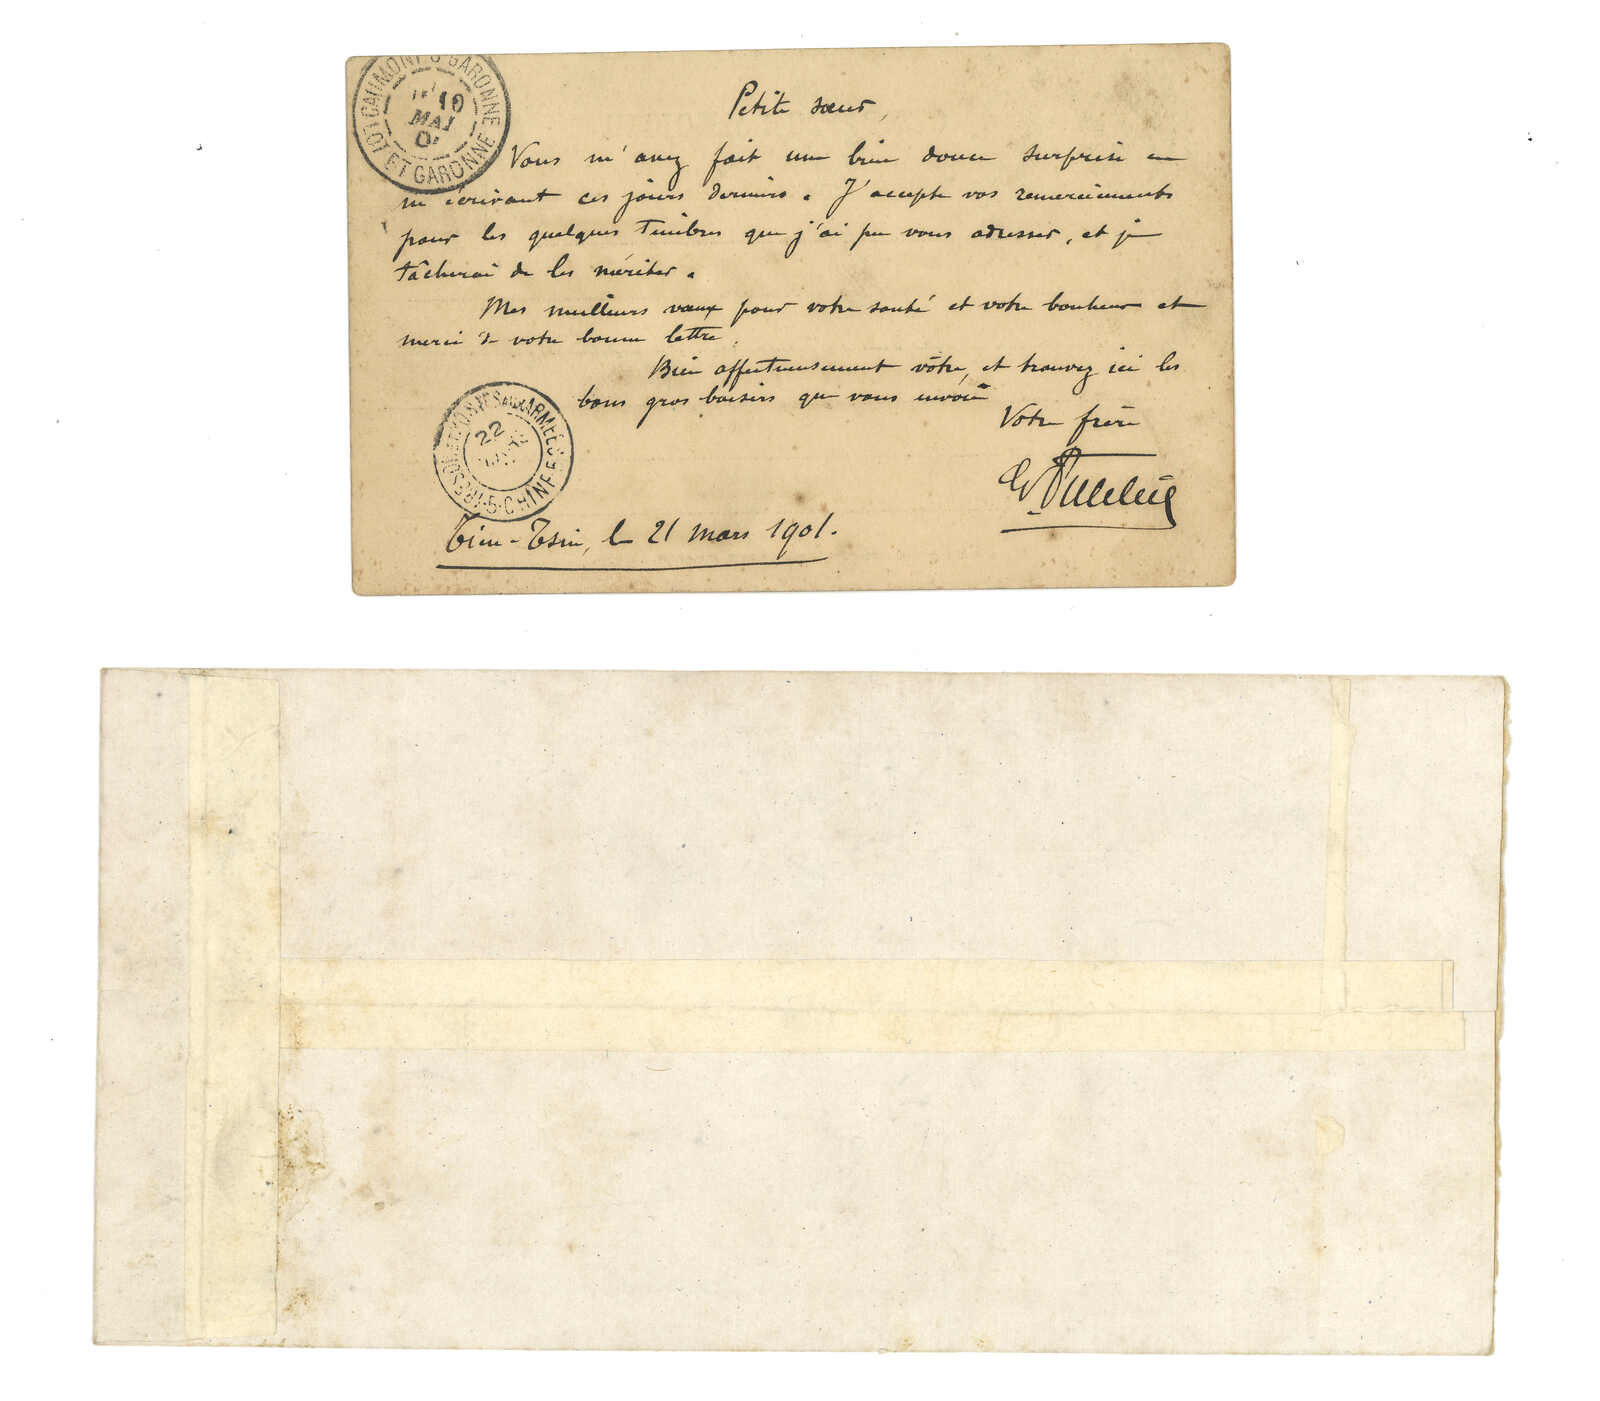 CAUMONT S GARONNE
LOT ET GARONNE
10
MAI
Petite sœur,
Vous m'avez fait une bien douce surprise en
m'écrivant ces jours derniers. J'accepte vos remerciements
pour les quelques timbres que j'ai pu vous adresser, et je
tâcherai de les mériter.
Mes meilleurs vœux pour votre santé et votre bonheur et
merci de votre bonne lettre.
Bien affectueusement vôtre, et trouvez ici les
bons gros baisers que vous envoie
Votre frère
TRESOR ET POSTES AUX ARMEES
5 · CHINE
22
Tien-Tsin, le 21 mars 1901.